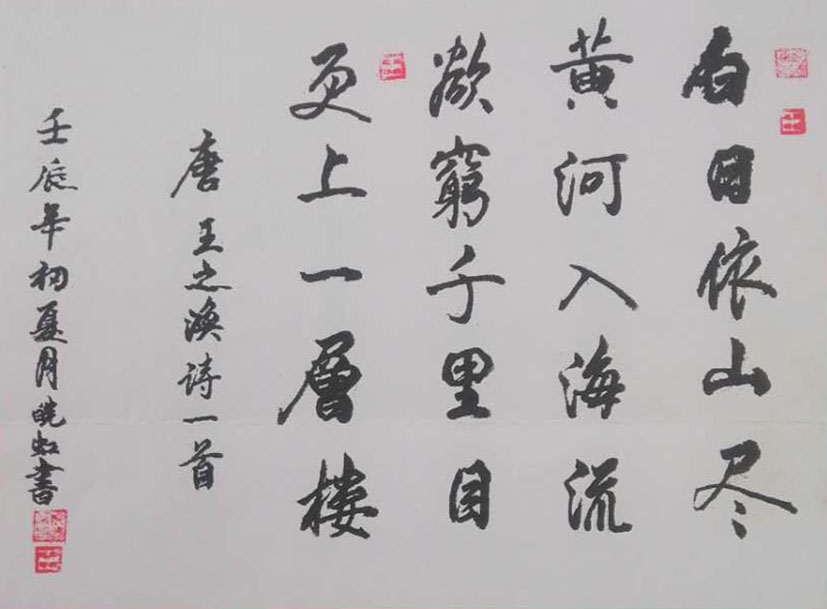 白日依山尽
黄河入海流
欲窮千里目
更上一層楼
唐王之渙诗一首
壬辰年初夏月晓虹書